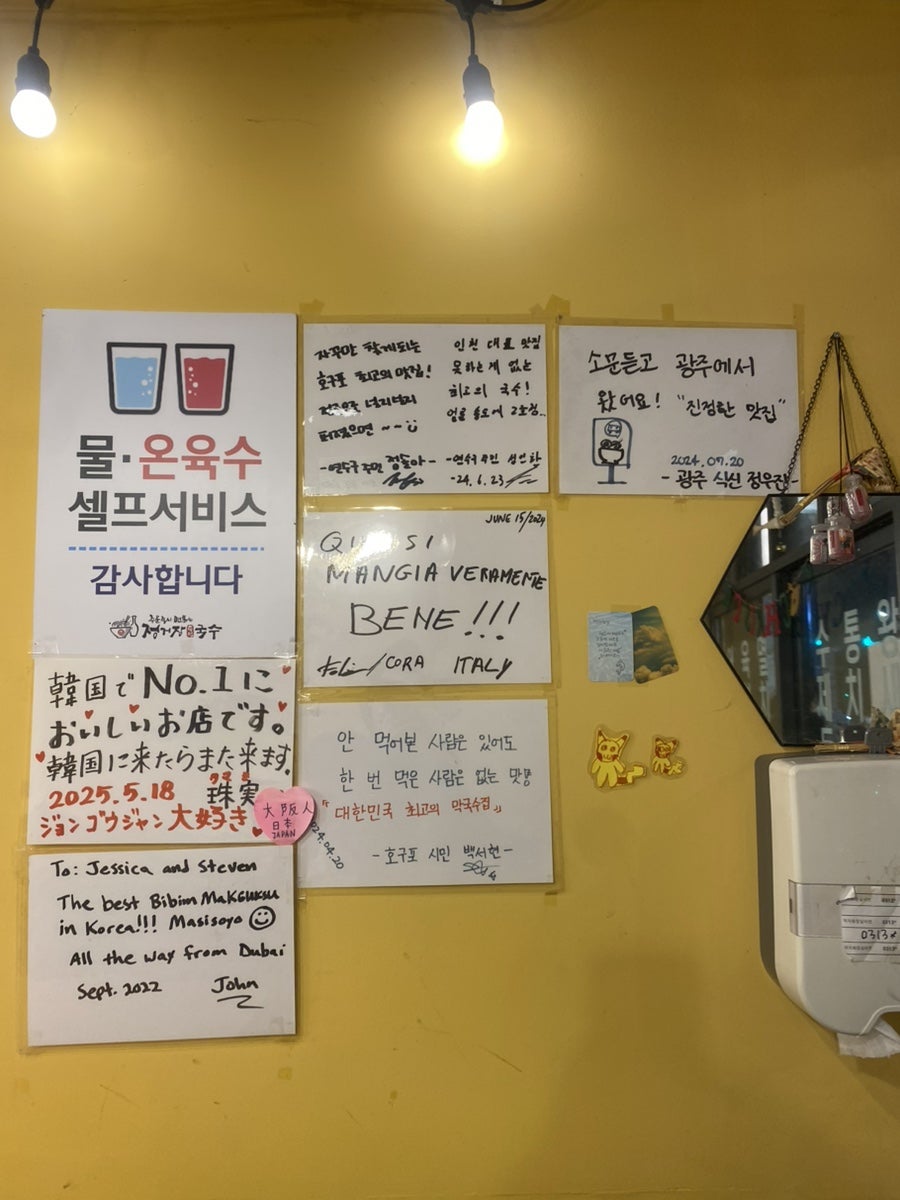 물·온육수
셀프서비스
감사합니다
정거장 국수
韓国でNo.1に
おいしいお店です。
韓国に来たらまた来ます。
2025.5.18 珠実
タマミ
ジョンゴウジャン大好き
大阪人
日本
JAPAN
To: Jessica and Steven
The best Bibim Makguksu
in Korea!!! Masisoyo
All the way from Dubai
Sept. 2022 John
자꾸만 찾게되는
호구포 최고의 맛집!
퍼졌으면 ~~
-연수구 주민 정솔아-
인천 대표 맛집
못하는게 없는
최고의 국수!
-연수구민
-24.6.23
JUNE 15/2024
QUI SI
MANGIA VERAMENTE
BENE!!!
CORA ITALY
안 먹어본 사람은 있어도
한 번 먹은 사람은 없는 맛!
『대한민국 최고의 막국수집』
2024.04.20
-호구포 시민 백서현-
소문듣고 광주에서
왔어요! "진정한 맛집"
2024.07.20
-광주 식신 정우진-
통
0313